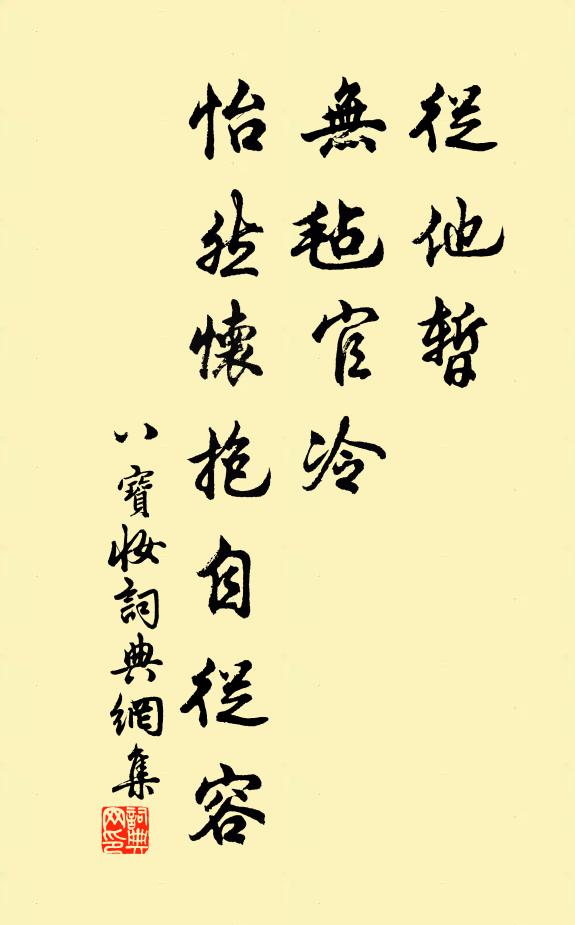 從他暫
無毡官冷
怡然懷抱自從容
八寶妝詞典網集
詞典网印